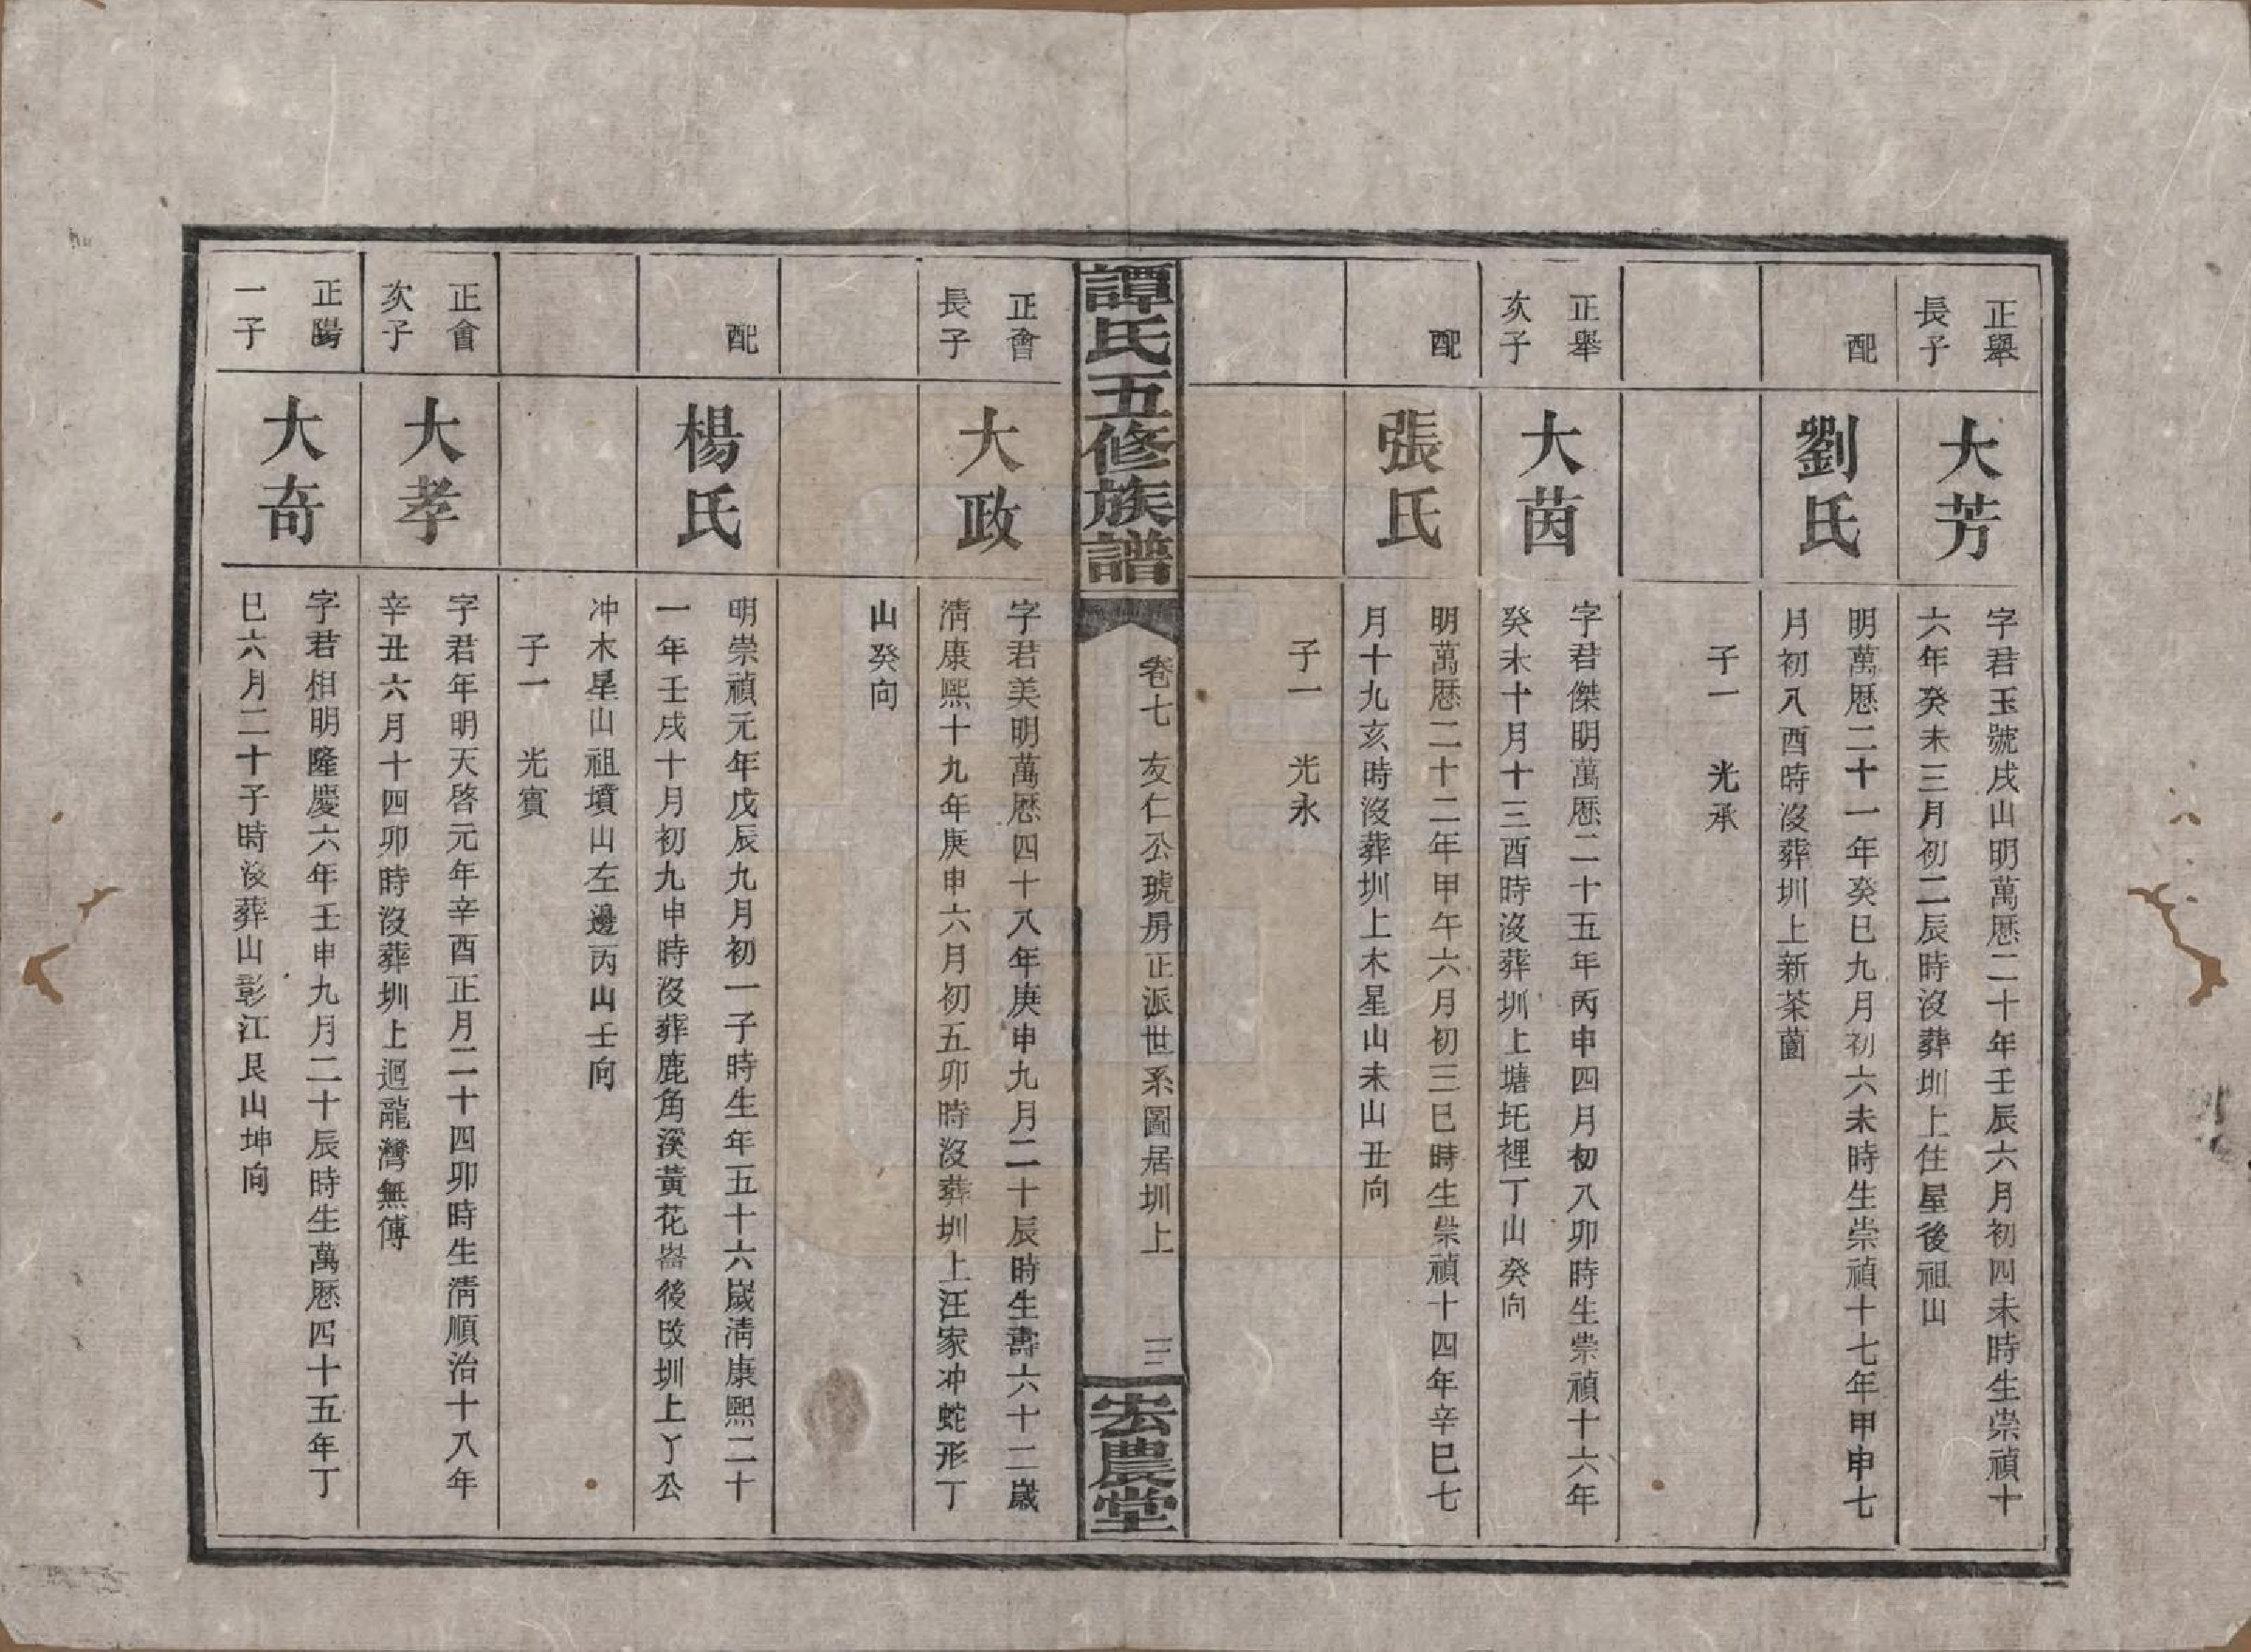 正舉
長子
大芳
字君玉號戌山明萬厯二十年壬辰六月初四未時生崇禎十
六年癸未三月初二辰時沒葬圳上住屋後祖山
配
劉氏
明萬厯二十一年癸巳九月初六未時生崇禎十七年甲申七
月初八酉時沒葬圳上新茶薗
子一　光承
正舉
次子
大茵
字君傑明萬厯二十五年丙申四月初八卯時生崇禎十六年
癸未十月十三酉時沒葬圳上塘圫裡丁山癸向
配
張氏
明萬厯二十二年甲午六月初三巳時生崇禎十四年辛巳七
月十九亥時沒葬圳上木星山未山丑向
子一　光永
譚氏五修族譜
卷七　友仁公琥房正派世系圖居圳上　三
宏農堂
正會
長子
大政
字君美明萬厯四十八年庚申九月二十辰時生壽六十二歲
清康熙十九年庚申六月初五卯時沒葬圳上汪家冲蛇形丁
山癸向
配
楊氏
明崇禎元年戊辰九月初一子時生年五十六歲清康熙二十
一年壬戌十月初九申時沒葬鹿角溪黃花嵓後改圳上丫公
冲木星山祖墳山左邊丙山壬向
子一　光賓
正會
次子
大孝
字君年明天啓元年辛酉正月二十四卯時生清順治十八年
辛丑六月十四卯時沒葬圳上迴龍灣無傳
正陽
一子
大奇
字君相明隆慶六年壬申九月二十辰時生萬厯四十五年丁
巳六月二十子時沒葬山彰江艮山坤向